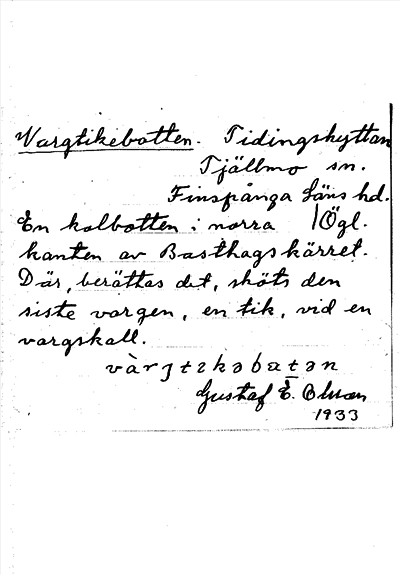 Vargtikebotten. Tidingshyttan
Tjällmo sn.
Finspånga Läns hd.
En kolbotten i norra / Ögl.
kanten av Basthagskärret.
Där, berättas det, sköts den
siste vargen, en tik, vid en
vargskall.
vàrʒtɛkəbɑtən
Gustaf E. Olsson
1933